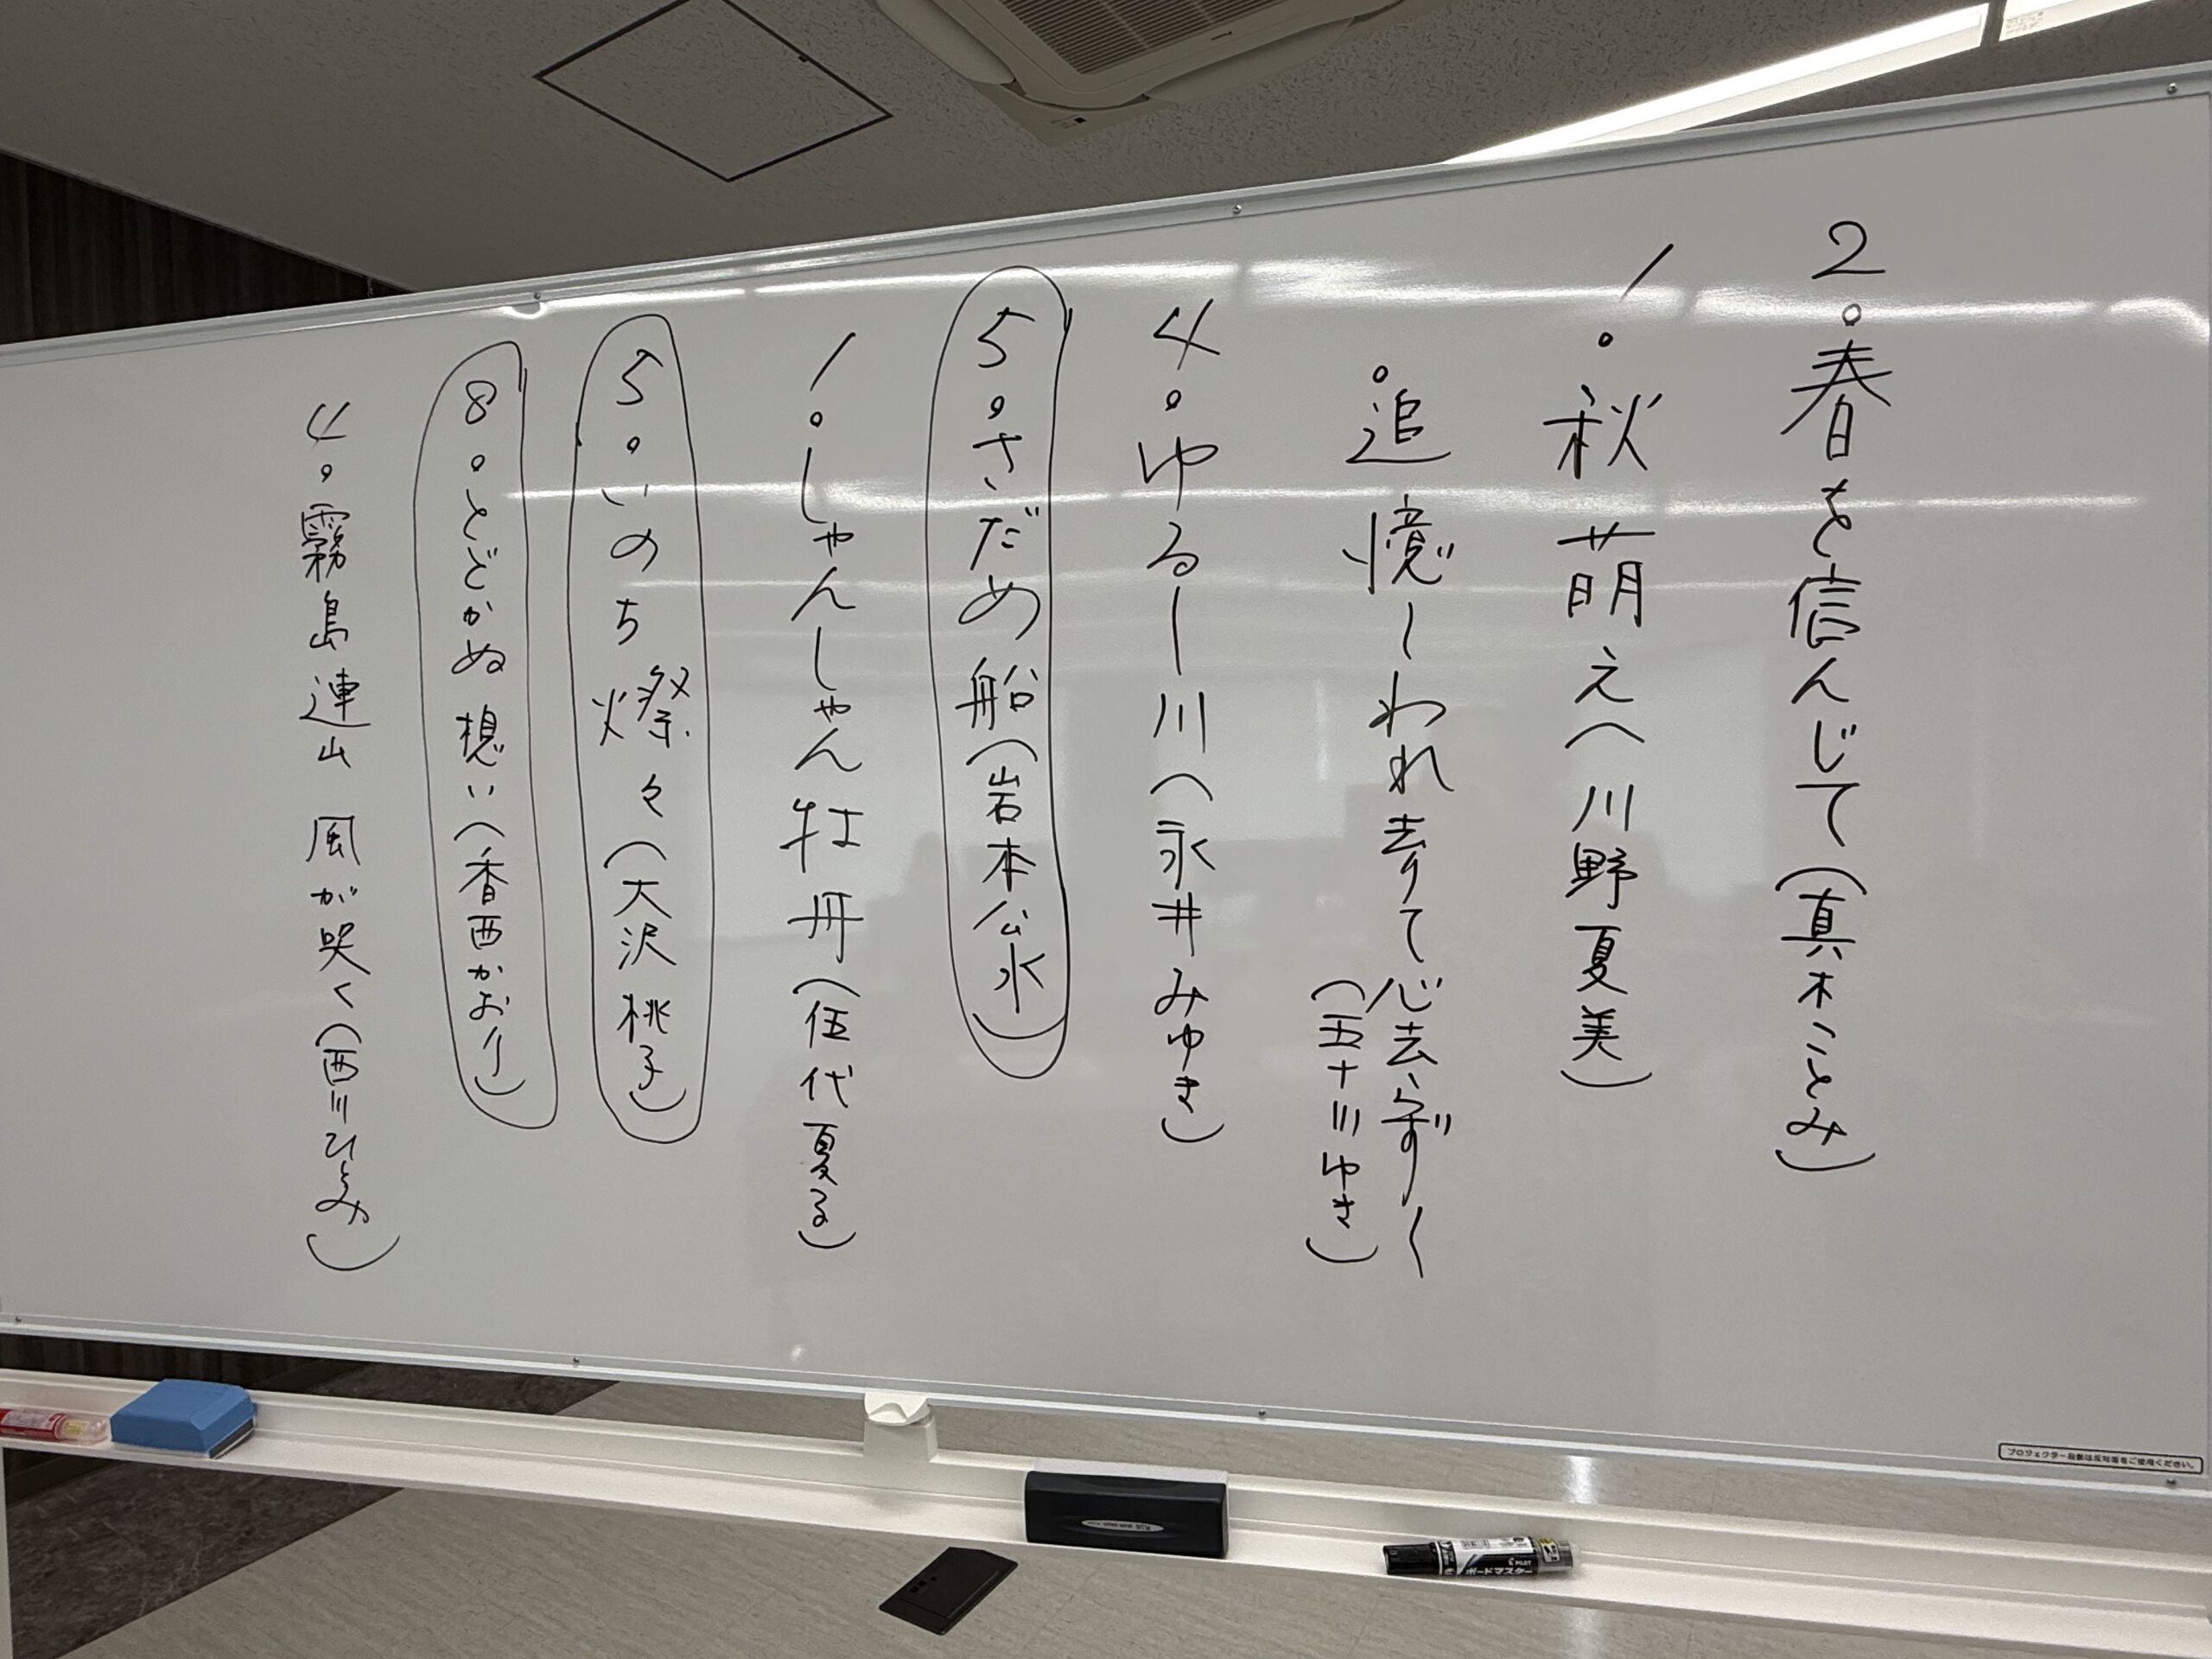 2。春を信んじて(真木ことみ)
1。秋萌え(川野夏美)
。追憶~われ去りて心去らず~
(五十川ゆき)
4。ゆるー川(永井みゆき)
5。さだめ船(岩本公水)
1。しゃんしゃん牡丹(伍代夏る)
5。いのち燦々(大沢桃子)
8。とどかぬ想い(香西かおり)
4。霧島連山 風が哭く(西川ひとみ)
プロジェクター投影は反対面をご使用ください。
PILOT
ボードマスター